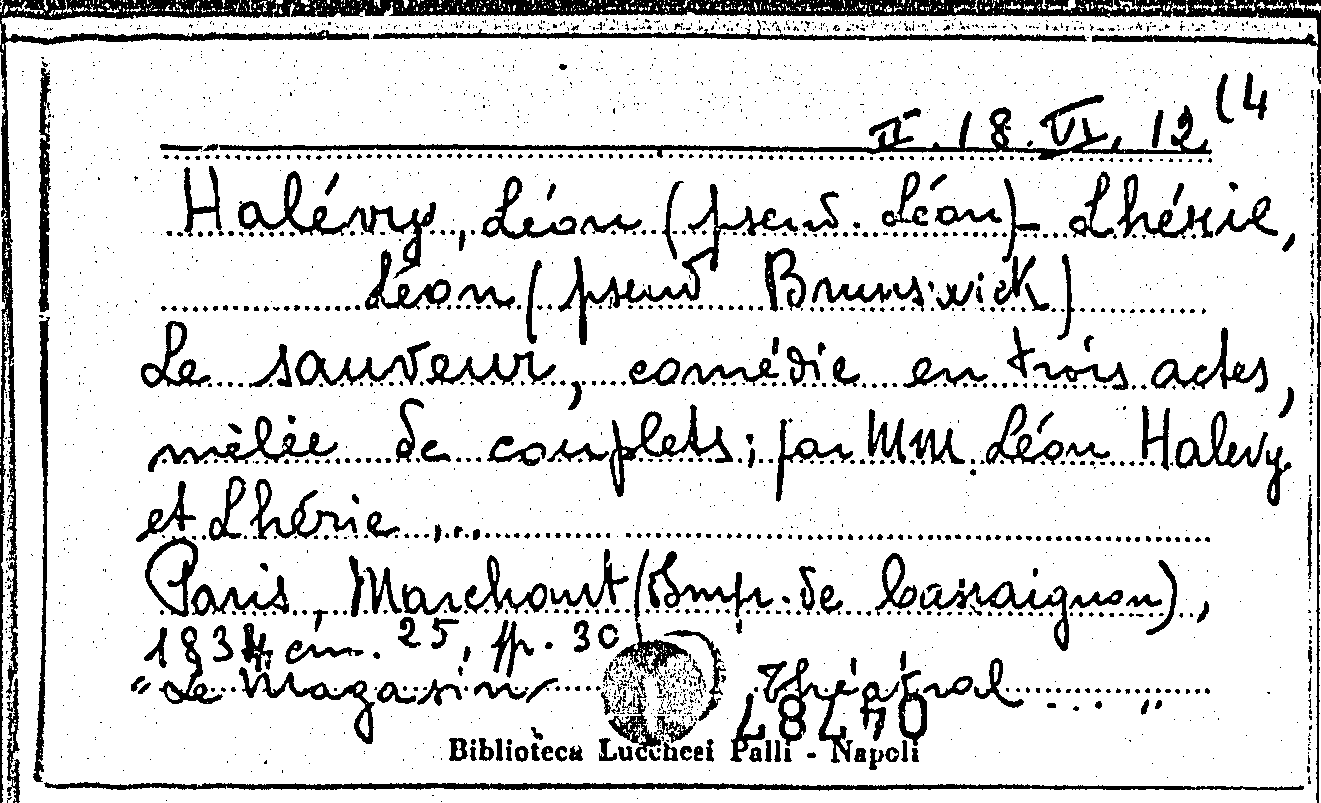 II.18.VI.12 (4
Halévy, Léon (pseud. Léon) - Lhérie,
Léon (pseud Brunswick)
Le sauveur, comédie en trois actes,
mêlée de couplets; par MM. Léon Halevy
et Lhérie ...
Paris, Marchant (Imp. de Cassaignon),
1834 cm. 25, pp. 30
"Le Magasin Théâtral ... "
48440
Biblioteca Lucchesi Palli - Napoli